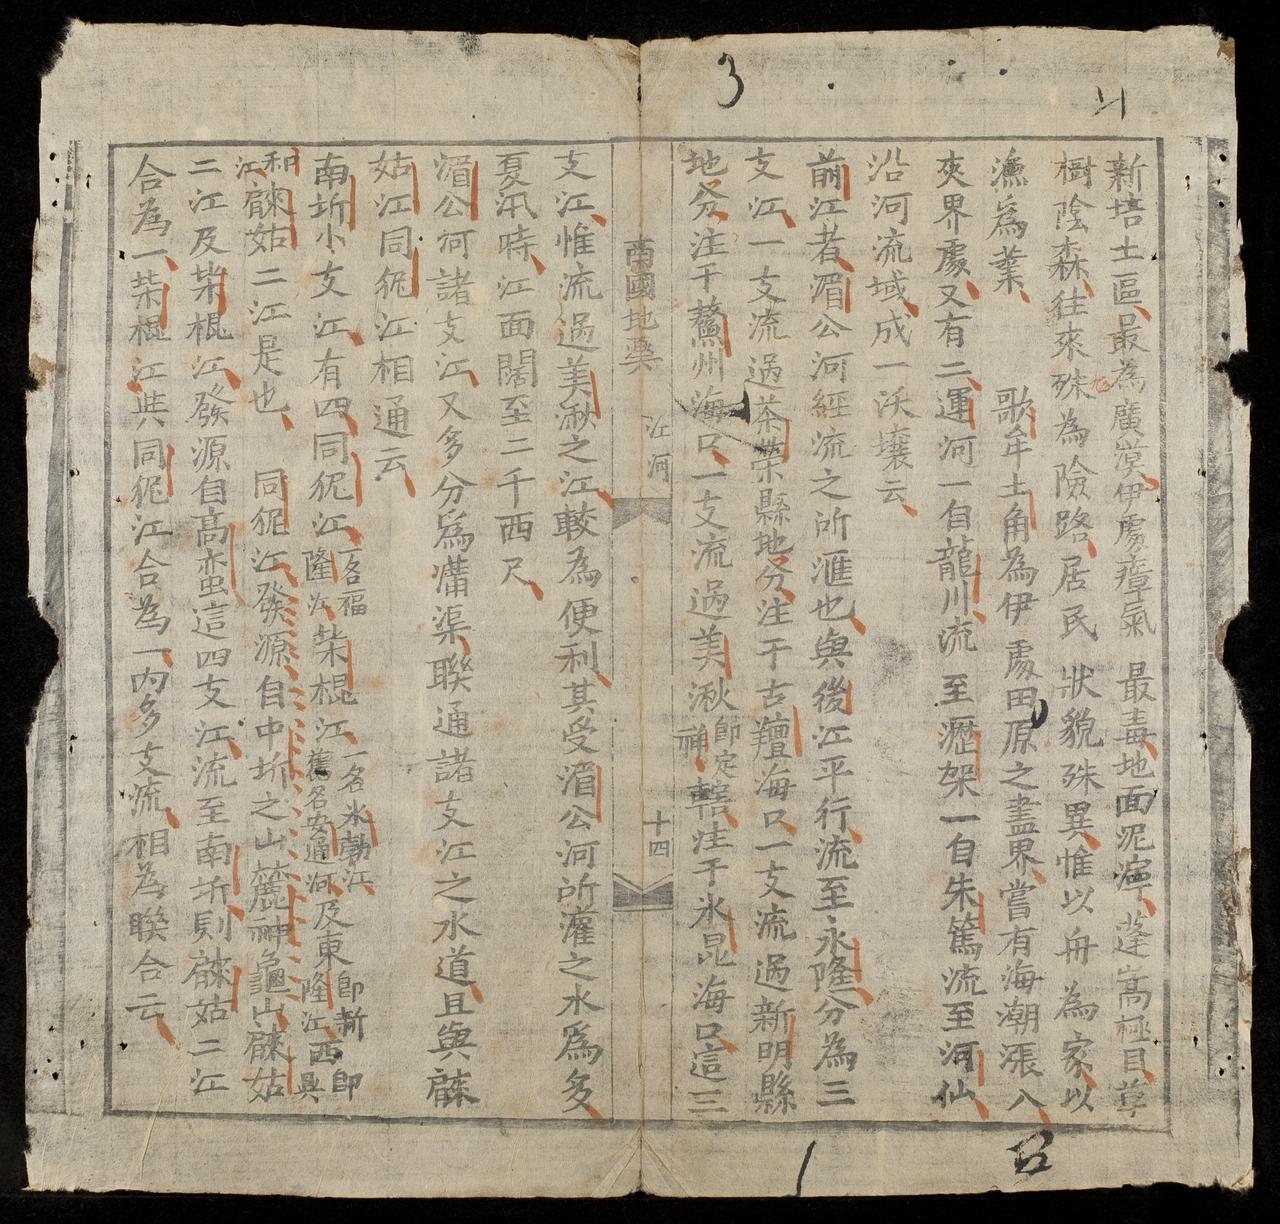 新培土區最為廣漠伊處瘴氣最毒地面泥濘蓬蒿極目草
樹陰森往來殊為險路居民狀貌殊異惟以舟為家以
漁爲業 歌牟土角為伊處田原之盡界嘗有海潮漲八
夾界處又有二運河一自龍川流至瀝架一自朱篤流至河仙
沿河流域成一沃壤云
前江者湄公河經流之所滙也與後江平行流至永隆分為三
支江一支流過茶榮縣地分注于古羶海口一支流過新明縣
地分注于鰲州海口一支流過美湫即定祥轄注于氷昆海口這三
南國地輿 江河 十四
支江惟流過美湫之江較為便利其受湄公河所灌之水爲多
夏汛時江面闊至二千西尺
湄公河諸支江又多分爲溝渠聯通諸支江之水道且與𪋿
姑江同狔江相通云
南圻小支江有四同狔江一名福隆江柴棍江一名氷勒江舊名安通河及東即新隆江西即具
和江姑二江是也 同狔江發源自中圻之山麓神龜山姑
二江及柴棍江發源自高蛮這四支江流至南圻則姑二江
合為一柴棍江與同狔江合為一內多支流相為聯合云